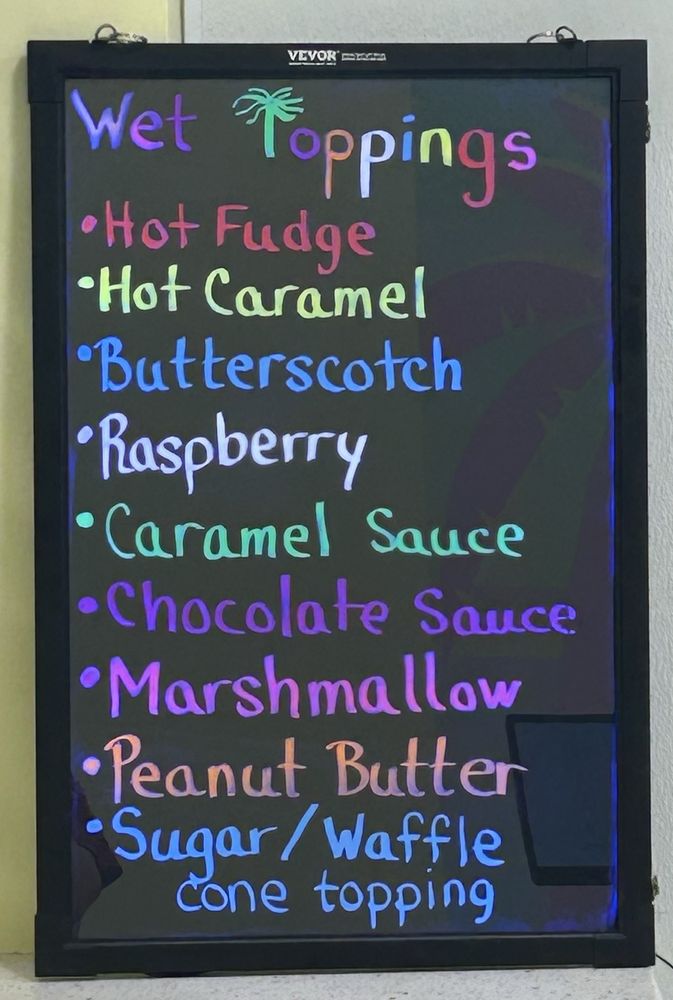 VEVOR
Wet Toppings
•Hot Fudge
•Hot Caramel
•Butterscotch
•Raspberry
•Caramel Sauce
•Chocolate Sauce
•Marshmallow
•Peanut Butter
•Sugar/Waffle
cone topping